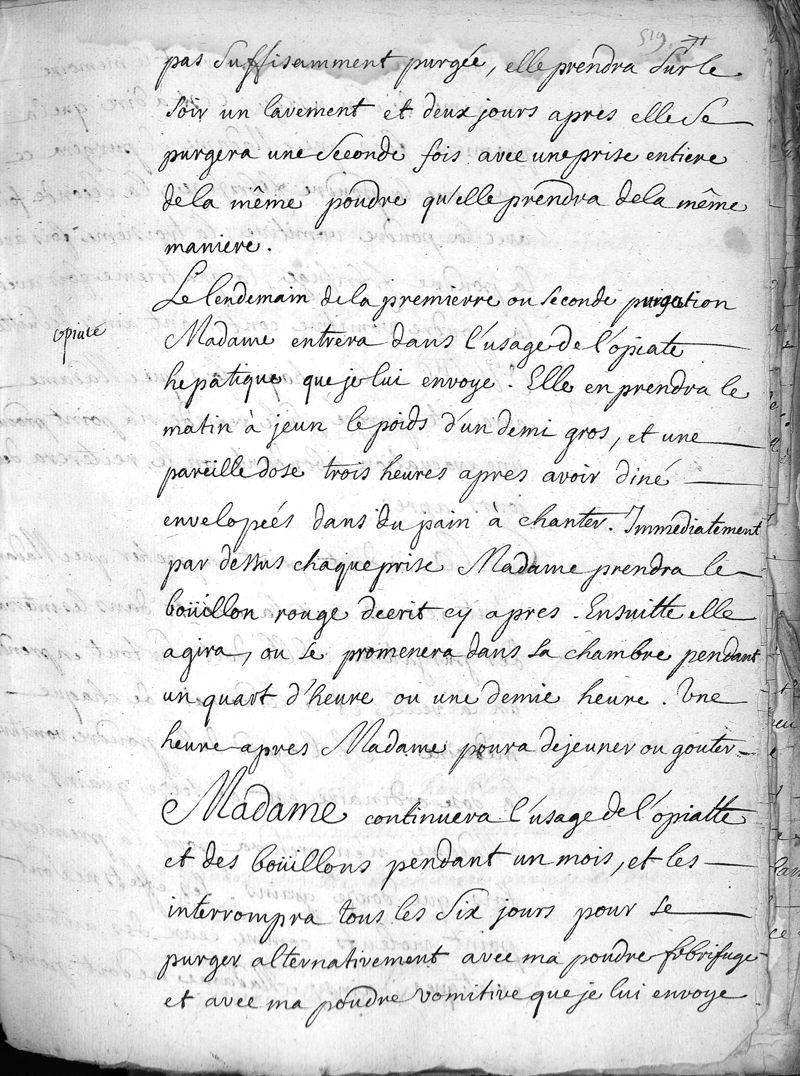 pas suffisamment purgée, elle prendra sur le
soir un lavement et deux jours apres elle se
purgera une seconde fois avec une prise entiere
de la même poudre qu'elle prendra de la même
maniere.
Le lendemain de la premierre ou seconde purgation
opiate
Madame entrera dans l'usage de l'opiate
hepatique que je lui envoye. Elle en prendra le
matin à jeun le poids d'un demi gros, et une
pareille dose trois heures apres avoir diné
envelopeés dans du pain a chanter. Immediatement
par dessus chaque prise Madame prendra le
boüillon rouge decrit cy apres. Ensuitte elle
agira, ou se promenera dans sa chambre pendant
un quart d'heure ou une demie heure. Une
heure apres Madame poura dejeuner ou gouter
Madame continuera l'usage de l'opiatte
et des boüillons pendant un mois, et les
interrompra tous les six jours pour se
purger alternativement avec ma poudre febrifuge
et avec ma poudre vomitive que je lui envoye